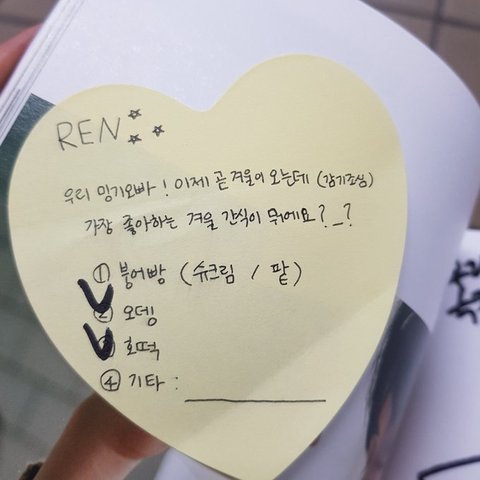 REN
우리 밍기오빠! 이제 곧 겨울이 오는데 (감기조심)
가장 좋아하는 겨울 간식이 뭐에요?_?
① 붕어빵 (슈크림 / 팥)
② 오뎅
③ 호떡
④ 기타 :